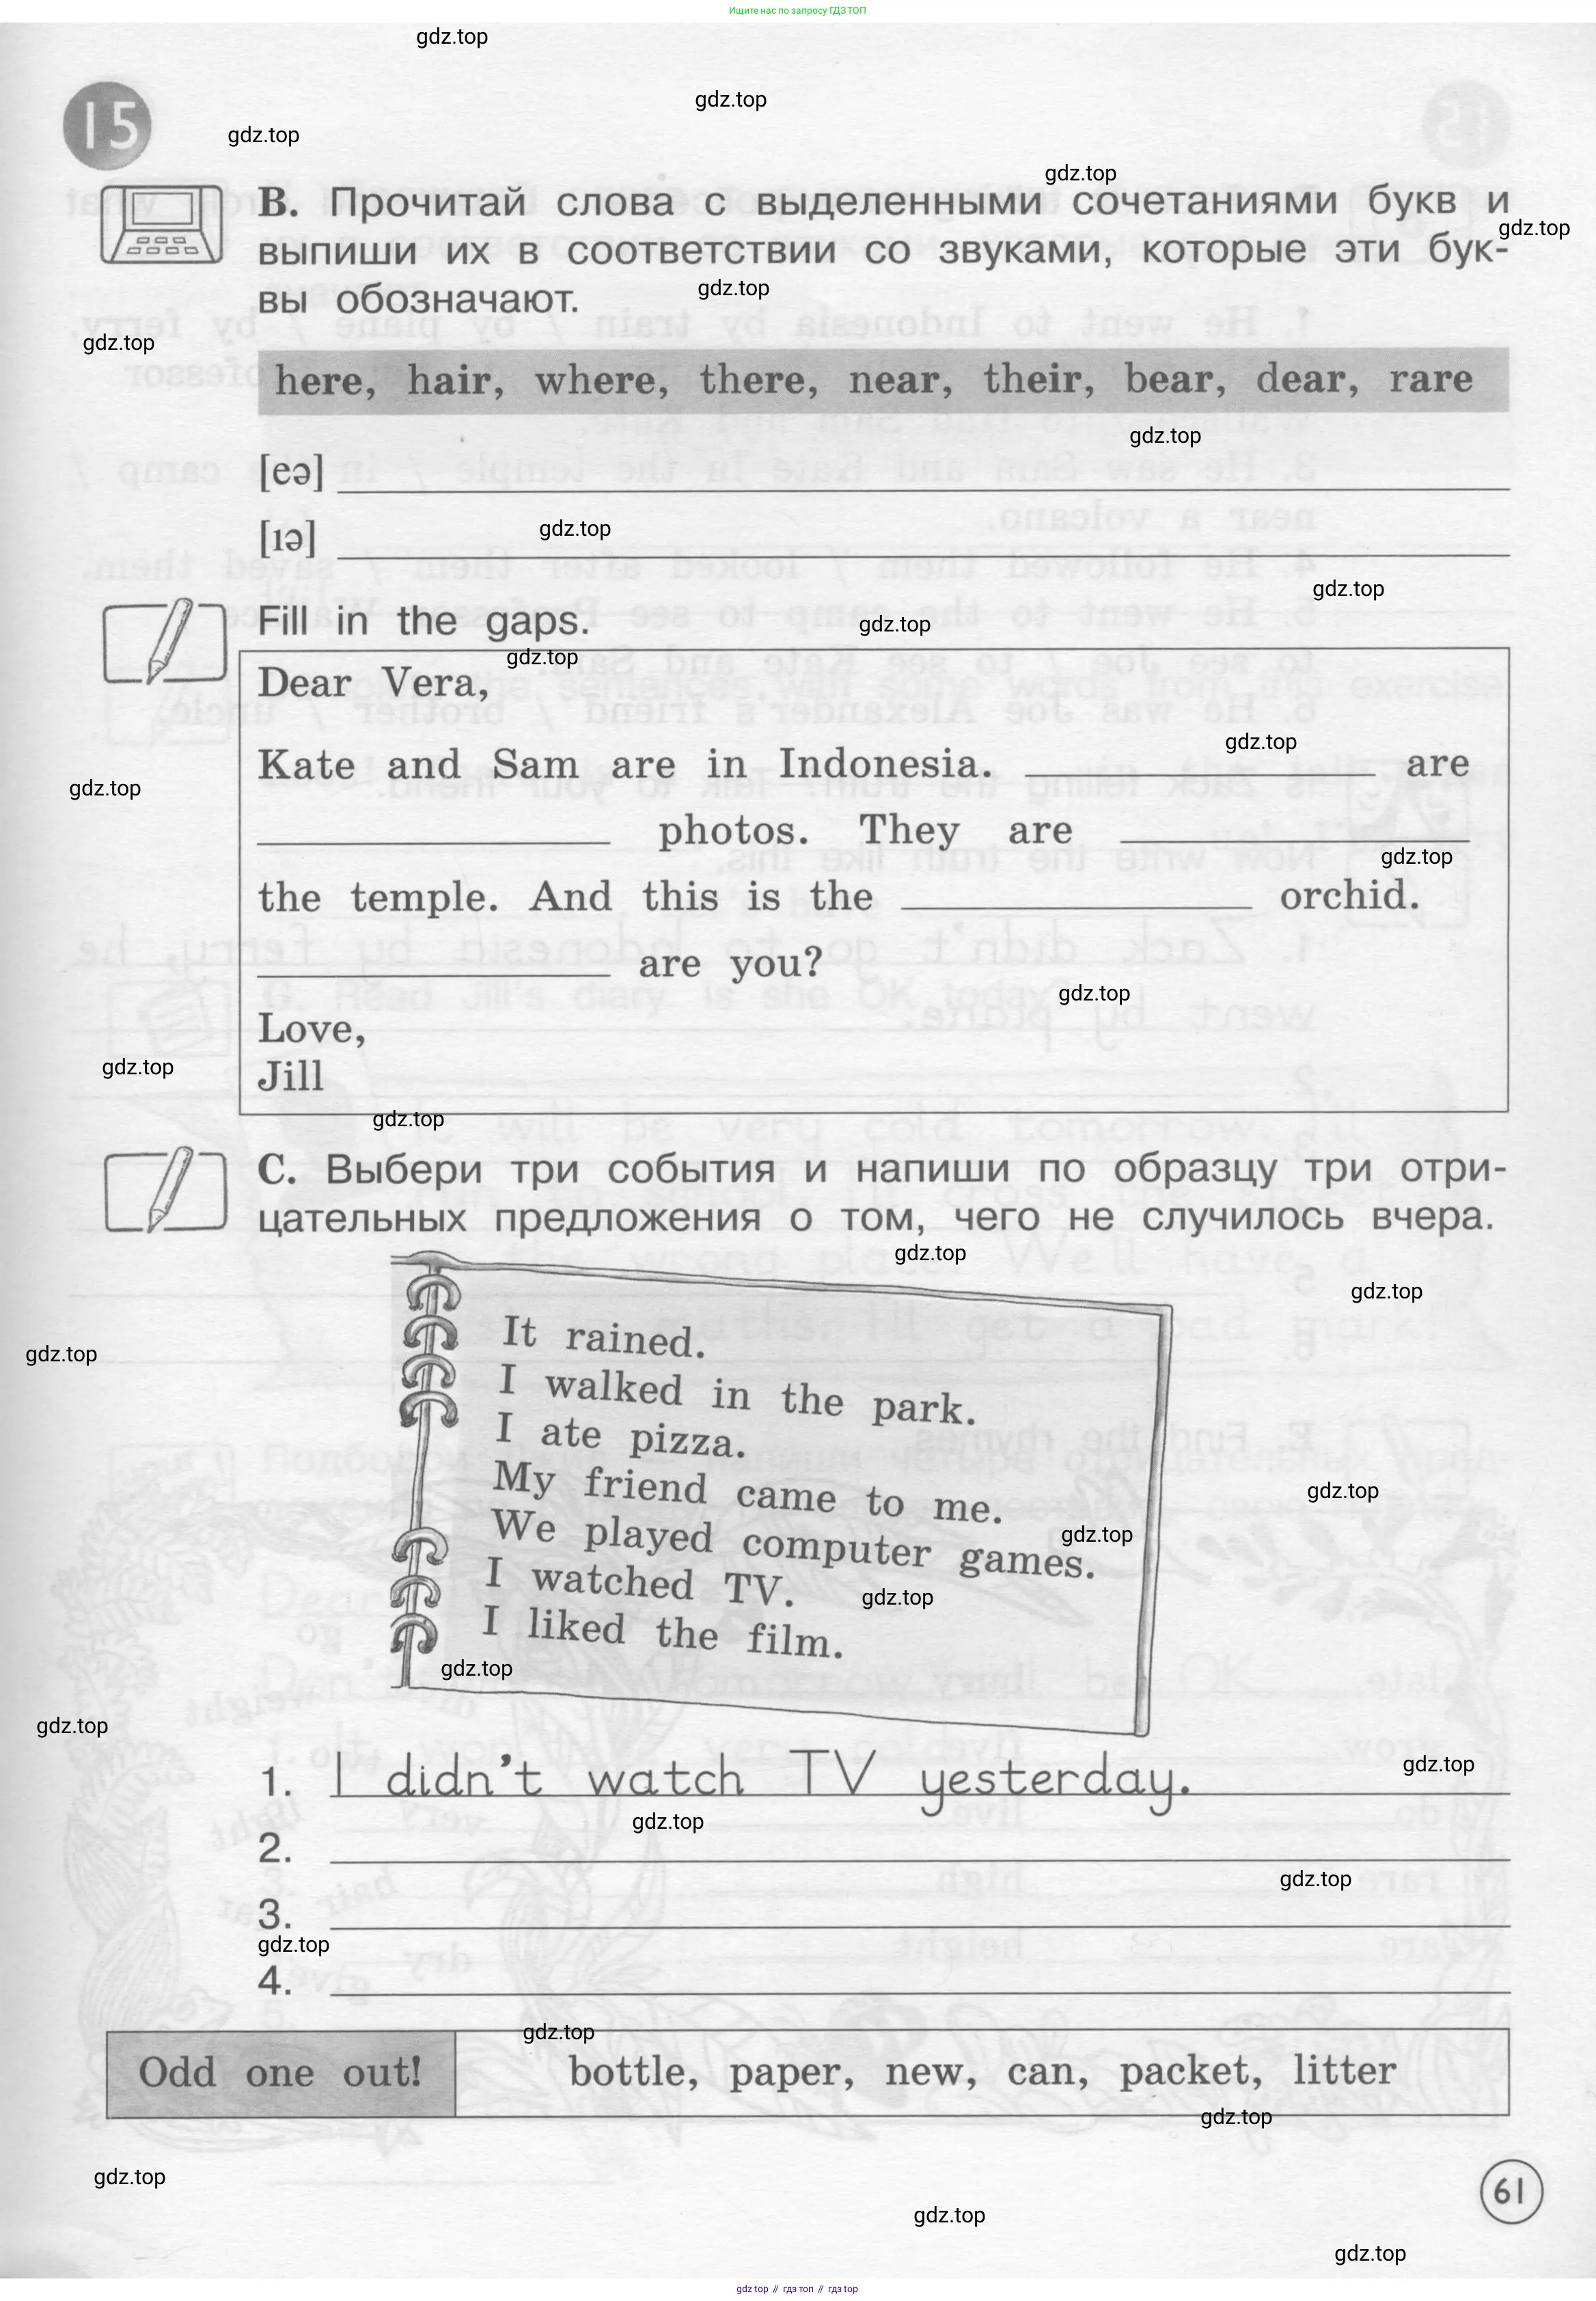 Ищите нас по запросу ГДЗ ТОП
gdz.top
gdz.top
15
gdz.top
gdz.top
B. Прочитай слова с выделенными сочетаниями букв и
gdz.top
выпиши их в соответствии со звуками, которые эти бук-
gdz.top
вы обозначают.
gdz.top
here, hair, where, there, near, their, bear, dear, rare
gdz.top
[eə]
gdz.top
[ɪə]
gdz.top
Fill in the gaps.
gdz.top
gdz.top
Dear Vera,
gdz.top
Kate and Sam are in Indonesia. are
gdz.top
photos. They are
gdz.top
the temple. And this is the orchid.
are you?
gdz.top
Love,
gdz.top
Jill
gdz.top
C. Выбери три события и напиши по образцу три отри-
цательных предложения о том, чего не случилось вчера.
gdz.top
gdz.top
It rained.
gdz.top
I walked in the park.
I ate pizza.
My friend came to me.
gdz.top
We played computer games.
gdz.top
I watched TV.
gdz.top
I liked the film.
gdz.top
gdz.top
1. I didn't watch TV yesterday.
gdz.top
gdz.top
2.
gdz.top
3.
gdz.top
4.
gdz.top
Odd one out! bottle, paper, new, can, packet, litter
gdz.top
gdz.top
61
gdz.top
gdz.top
gdz top // гдз топ // гдз top